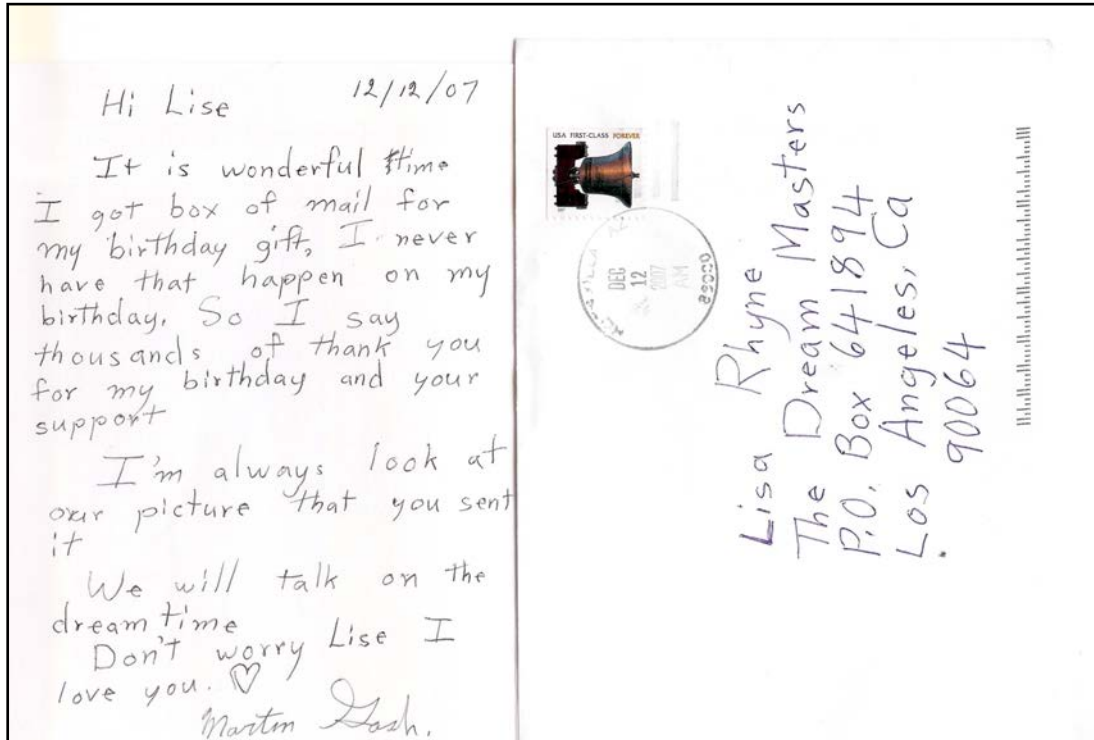 Hi Lise 12/12/07
It is wonderful time
I got box of mail for
my birthday gift, I never
have that happen on my
birthday. So I say
thousands of thank you
for my birthday and your
support
I'm always look at
our picture that you sent
it
We will talk on the
dream time
Don't worry Lise I
love you. ♡
Martin Gash.
USA FIRST-CLASS FOREVER
DEC
12
2007
AM
Lisa Rhyne
The Dream Masters
P.O. Box 641894
Los Angeles, Ca
90064